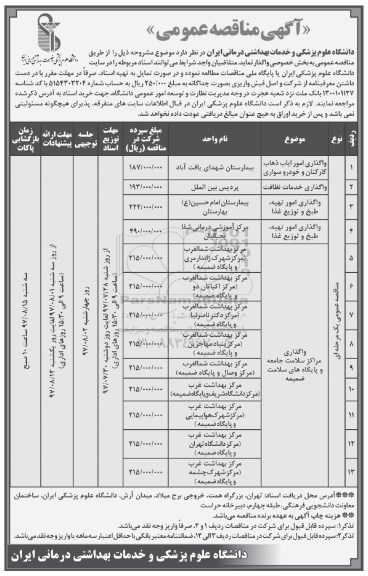 «آگهی مناقصه عمومی»
دانشگاه علوم پزشکی و خدمات بهداشتی درمانی ایران در نظر دارد موضوع مشروحه ذیل را از طریق
مناقصه عمومی به بخش خصوصی واگذار نماید، متقاضیان واجد شرایط می‌توانند اسناد مربوطه را در سایت
دانشگاه علوم پزشکی ایران یا پایگاه ملی مناقصات مطالعه نموده و در صورت تمایل به تهیه اسناد، صرفاً در مهلت مقرر با در دست
داشتن معرفینامه از شرکت و اصل فیش واریزی بصورت جداگانه به مبلغ ۲۵۰/۰۰۰ ریال به حساب شماره
مراجعه نمایند. لازم به ذکر است دانشگاه علوم پزشکی ایران در قبال اطلاعات سایت های متفرقه، پذیرای هیچگونه مسئولیتی
نمی باشد و پس از خرید اوراق به هیچ عنوان مبالغ دریافتی عودت داده نخواهد شد.
ردیف نوع موضوع نام واحد مبلغ سپرده شرکت در مناقصه (ریال) مهلت توزیع اسناد جلسه توجیهی مهلت ارائه پیشنهادات زمان بازگشایی پاکات
مناقصه عمومی یک مرحله ای
۱ واگذاری امور ایاب ذهاب کارکنان و خودرو سواری بیمارستان شهدای یافت آباد ۱۸۷/۰۰۰/۰۰۰
۲ واگذاری خدمات نظافت پردیس بین الملل ۱۹۳/۰۰۰/۰۰۰
۳ واگذاری امور تهیه، طبخ و توزیع غذا بیمارستان امام حسین(ع) بهارستان
۴ واگذاری امور تهیه، طبخ و توزیع غذا مرکز آموزشی درمانی شفا یحیائیان ۴۹۰/۰۰۰/۰۰۰
واگذاری مراکز سلامت جامعه و پایگاه های سلامت ضمیمه
۵ مرکز بهداشت شمالغرب (مرکز شهرک ژاندارمری و پایگاه ضمیمه) ۲۱۵/۰۰۰/۰۰۰
۶ مرکز بهداشت شمالغرب (مرکز کاشان دو و پایگاه ضمیمه) ۲۱۵/۰۰۰/۰۰۰
۷ مرکز بهداشت شمالغرب ۲۱۵/۰۰۰/۰۰۰
۸ مرکز بهداشت شمالغرب ۲۱۵/۰۰۰/۰۰۰
۹ مرکز بهداشت شمالغرب (مرکز وصال و پایگاه ضمیمه) ۲۱۵/۰۰۰/۰۰۰
۱۰ مرکز بهداشت غرب (مرکز دانشگاه شریف و پایگاه ضمیمه) ۲۱۵/۰۰۰/۰۰۰
۱۱ مرکز بهداشت غرب (مرکز شهرک هواپیمایی و پایگاه ضمیمه) ۲۱۵/۰۰۰/۰۰۰
۱۲ مرکز بهداشت غرب (مرکز دانشگاه تهران و پایگاه ضمیمه) ۲۱۵/۰۰۰/۰۰۰
۱۳ مرکز بهداشت غرب (مرکز شهرک چشمه و پایگاه ضمیمه) ۲۱۵/۰۰۰/۰۰۰
روز چهارشنبه ۹۷/۰۸/۰۲
سه شنبه ۹۷/۰۸/۱۵ ساعت ۱۰ صبح
***آدرس محل دریافت اسناد: تهران، بزرگراه همت، خروجی برج میلاد، میدان آرش، دانشگاه علوم پزشکی ایران، ساختمان
معاونت دانشجویی فرهنگی، طبقه چهارم، دبیرخانه حراست
* هزینه چاپ آگهی به عهده برنده مناقصه می‌باشد.
تذکر۱: سپرده قابل قبول برای شرکت در مناقصات ردیف ۱ و ۲، صرفاً واریز وجه نقد می‌باشد.
تذکر۲: سپرده قابل قبول برای شرکت در مناقصات ردیف ۳ الی ۱۳، ضمانتنامه معتبر بانکی با حداقل اعتبار سه ماهه یا واریز وجه نقد می‌باشد.
دانشگاه علوم پزشکی و خدمات بهداشتی درمانی ایران